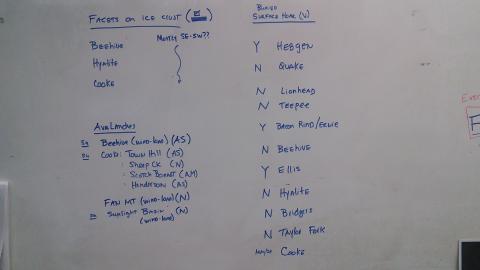 FACETS ON ICE CRUST
BEEHIVE
MOSTLY SE-SW??
HYALITE
COOKE
AVALANCHES
BEEHIVE (WIND-LOAD) (AS)
COOKE: TOWN HILL (AS)
: SHEEP CK (N)
: SCOTCH BONNET (AM)
: HENDERSON (AS)
FAN MT (WIND-LOAD) (N)
SUNLIGHT BASIN (N)
(WIND-LOAD)
BURIED
SURFACE HOAR (V)
Y HEBGEN
N QUAKE
N LIONHEAD
N TEEPEE
Y BACON RIND/
N BEEHIVE
Y ELLIS
N HYALITE
N BRIDGERS
N TAYLOR FORK
MAYBE COOKE